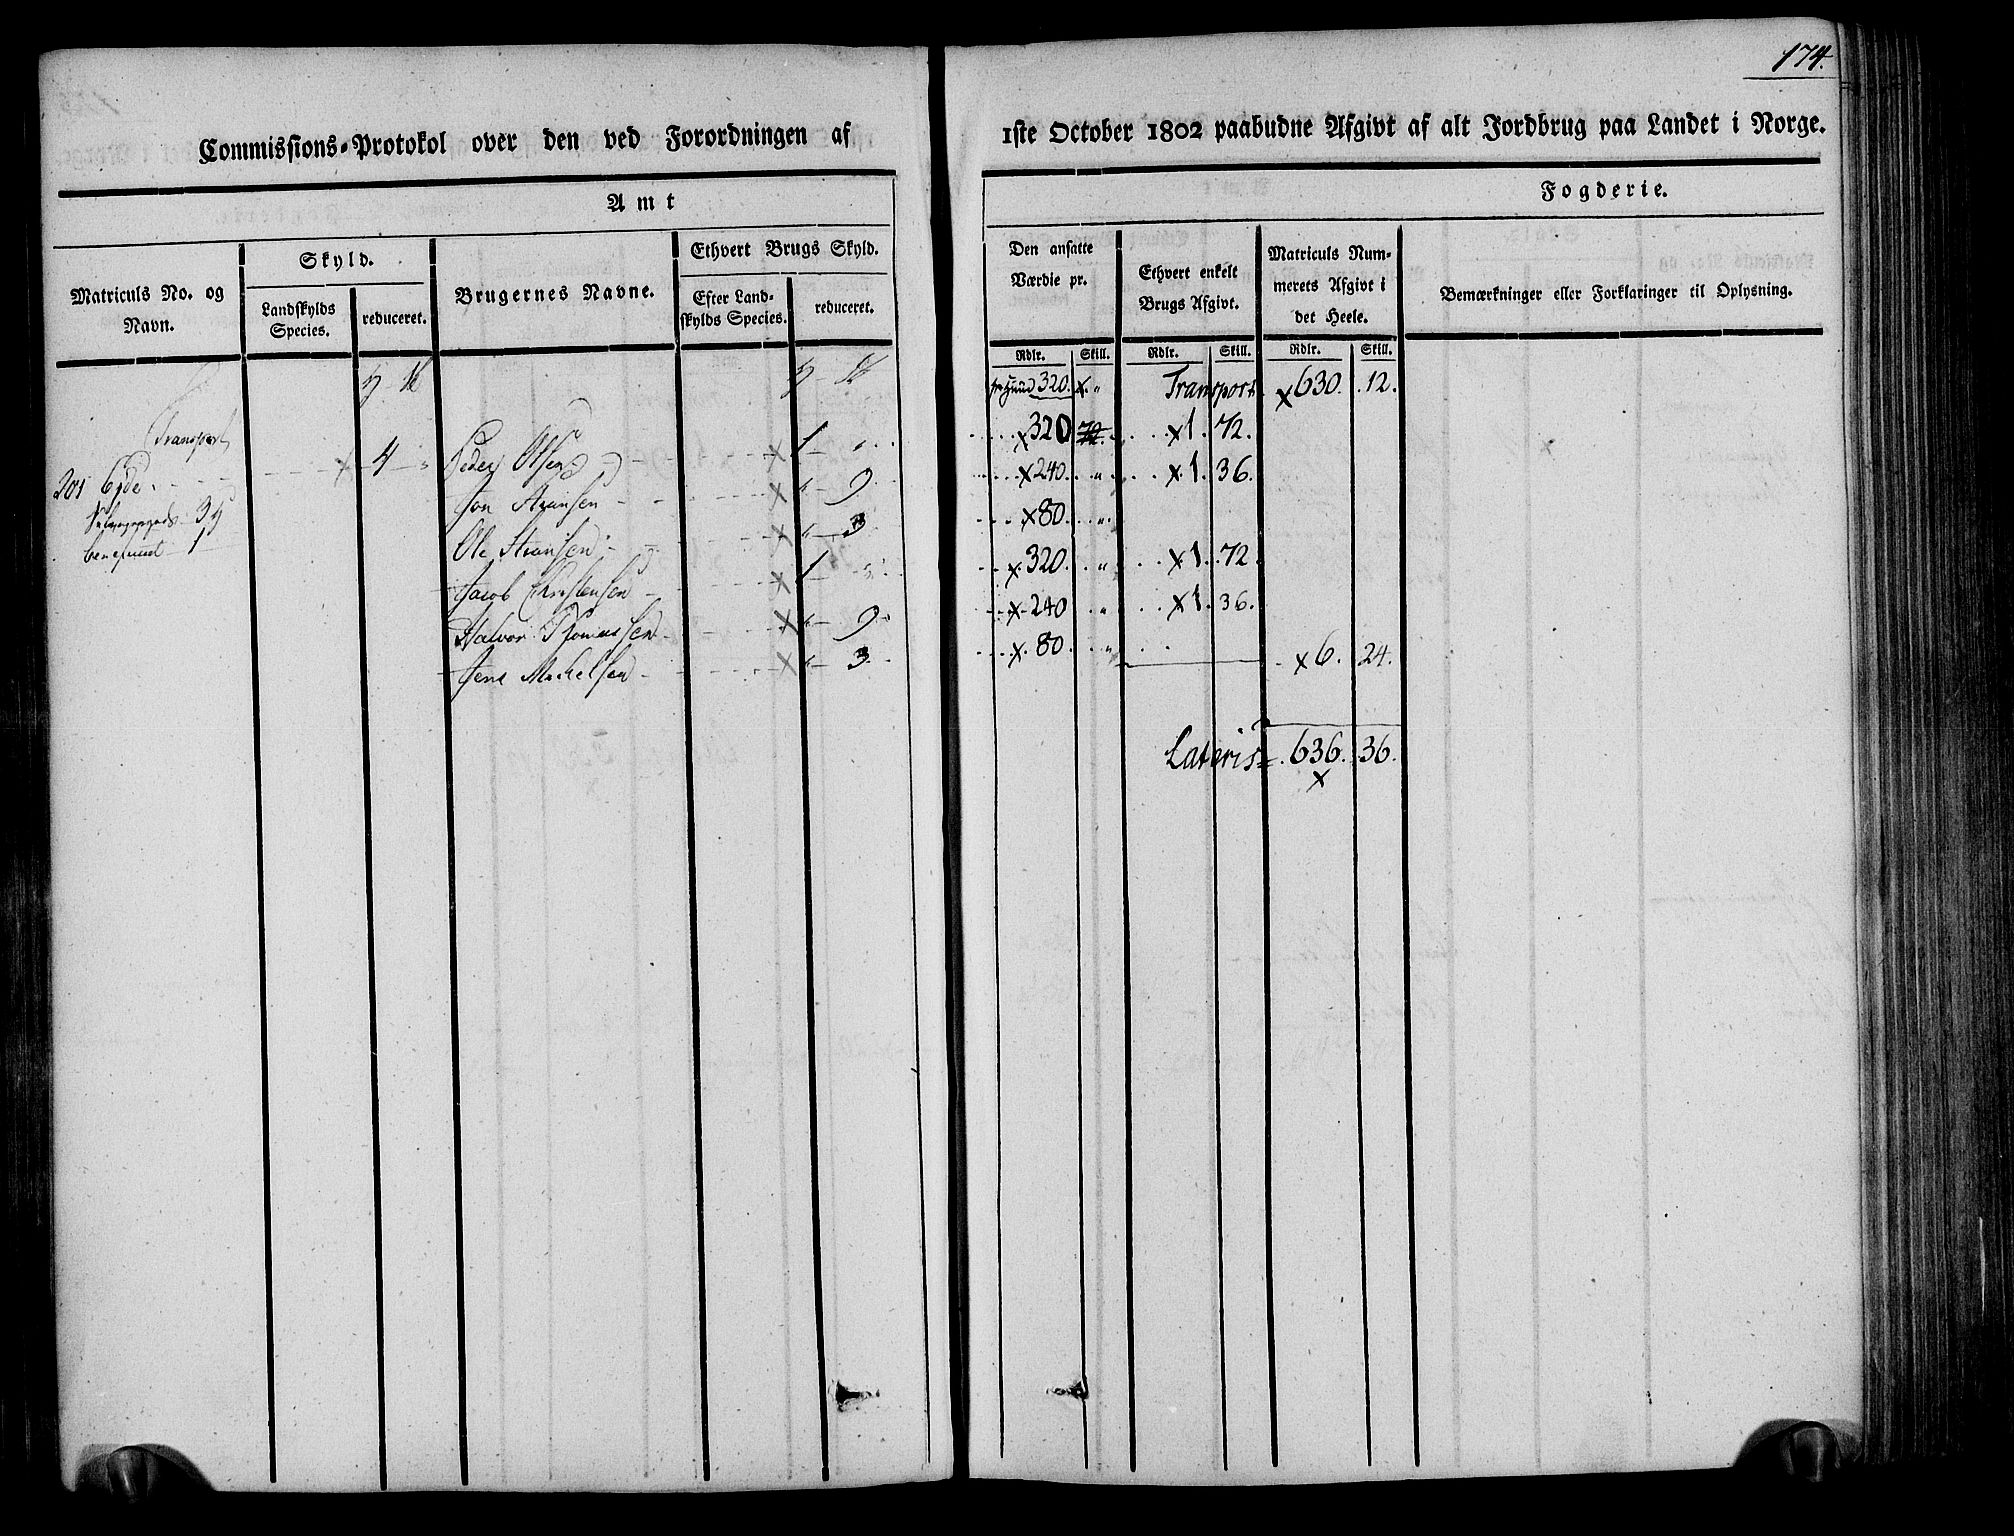 174.
Commissions-Protokol over den ved Forordningen af 1ste October 1802 paabudne Afgivt af alt Jordbrug paa Landet i Norge.
Amt Fogderie.
Matriculs No. og Navn.
Skyld.
Landskylds Species.
reduceret.
Brugernes Navne.
Ethvert Brugs Skyld.
Efter Landskylds Species.
reduceret.
Den ansatte Værdie pr.
Ethvert enkelt Brugs Afgivt.
Matriculs Nummerets Afgivt i det Heele.
Bemærkninger eller Forklaringer til Oplysning.
Rdlr. Skill. Rdlr. Skill. Rdlr. Skill.
320. Transport x 630. 12.
Transport
201 Eyde x 4 Peder Olsen x 1 x 320 x 1. 72.
Jon Aasen x " 9 x 240. " x 1. 36.
Ole Hansen x " 3 x 80. "
Jacob Christensen x 1 x 320. " x 1. 72.
Halvor Thomassen x " 9 x 240 " x 1. 36.
Jens Mickelsen x " 3 x 80 " x 6. 24.
Lateris 636. 36.
x